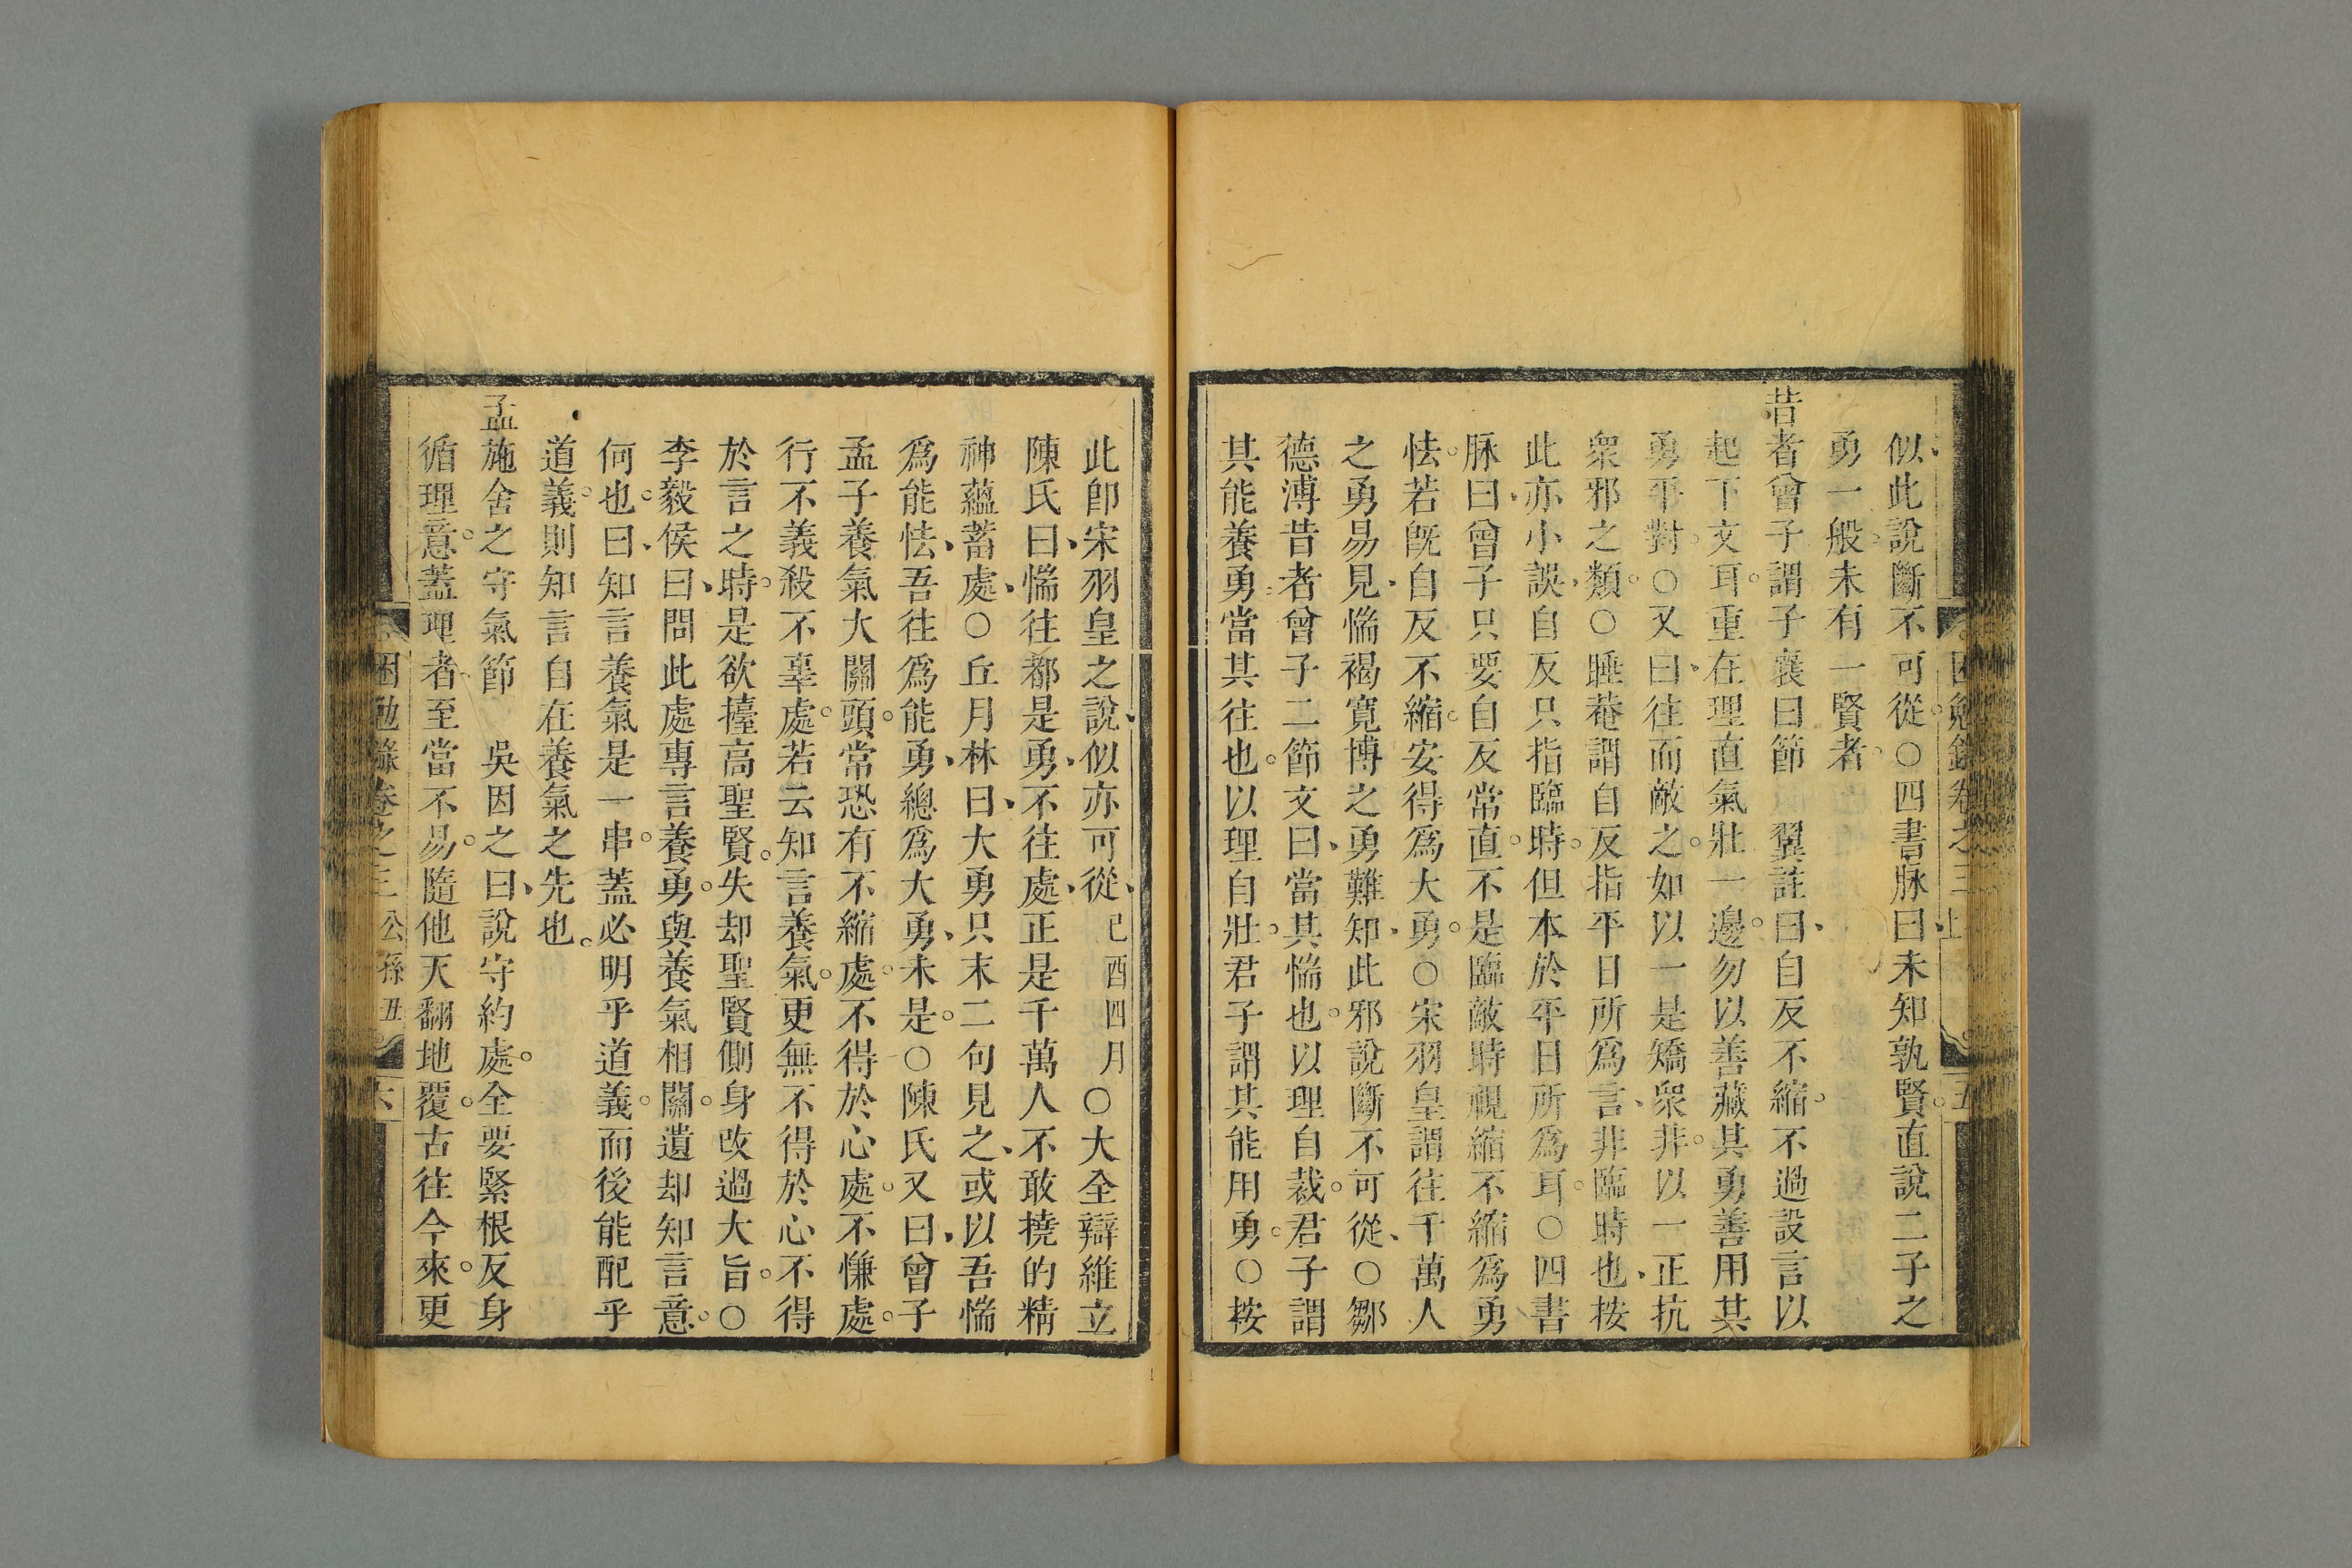 似此說斷不可從○四書脉曰未知孰賢直說二子之
勇一般未有一賢者
昔者曾子謂子襄曰節 翼註曰自反不縮不過設言以
起下文耳重在理直氣壯一邊勿以善藏其勇善用其
勇平對○又曰往而敵之如以一是矯衆非以一正抗
衆邪之類○睡菴謂自反指平日所爲言非臨時也按
此亦小誤自反只指臨時但本於平日所爲耳○四書
脉曰曾子只要自反常直不是臨敵時視縮不縮爲勇
怯若旣自反不縮安得爲大勇○宋羽皇謂往千萬人
之勇易見惴褐寬博之勇難知此邪說斷不可從○鄒
德溥昔者曾子二節文曰當其惴也以理自裁君子謂
其能養勇當其往也以理自壯君子謂其能用勇○按
此卽宋羽皇之說似亦可從己酉四月○大全辯維立
陳氏曰惴往都是勇不往處正是千萬人不敢撓的精
神蘊蓄處○丘月林曰大勇只末二句見之或以吾惴
爲能怯吾往爲能勇總爲大勇未是○陳氏又曰曾子
孟子養氣大關頭常恐有不縮處不得於心處不慊處
行不義殺不辜處若云知言養氣更無不得於心不得
於言之時是欲擡高聖賢失却聖賢側身改過大旨○
李毅侯曰問此處專言養勇與養氣相關遺却知言意
何也曰知言養氣是一串蓋必明乎道義而後能配乎
道義則知言自在養氣之先也
孟施舍之守氣節 吳因之曰說守約處全要緊根反身
循理意蓋理者至當不易隨他天翻地覆古往今來更
困勉錄卷之三 公孫丑